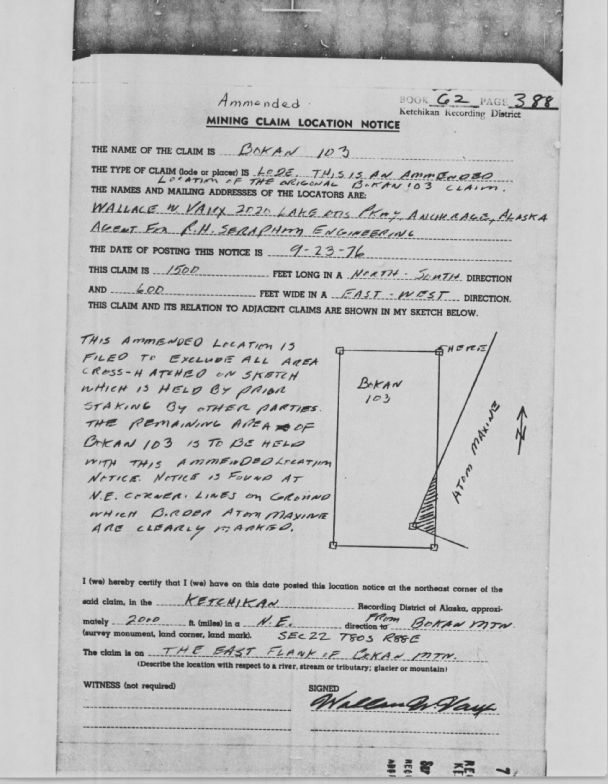 Ammended
BOOK 62 PAGE 388
Ketchikan Recording District
MINING CLAIM LOCATION NOTICE
THE NAME OF THE CLAIM IS BOKAN 103
THE TYPE OF CLAIM (lode or placer) IS LODE. THIS IS AN AMMENDED
LOCATION OF THE ORIGONAL BOKAN 103 CLAIM.
THE NAMES AND MAILING ADDRESSES OF THE LOCATORS ARE:
WALLACE W. 2020 LAKE OTIS PKWY ANCHORAGE, ALASKA
AGENT FOR R.H. SERAPHIM ENGINEERING
THE DATE OF POSTING THIS NOTICE IS 9-23-76
THIS CLAIM IS 1500 FEET LONG IN A NORTH - SOUTH DIRECTION
AND 600 FEET WIDE IN A EAST - WEST DIRECTION.
THIS CLAIM AND ITS RELATION TO ADJACENT CLAIMS ARE SHOWN IN MY SKETCH BELOW.
THIS AMMENDED LOCATION IS
FILED TO EXCLUDE ALL AREA
CROSS-HATCHED ON SKETCH
WHICH IS HELD BY PRIOR
STAKING BY OTHER PARTIES.
THE REMAINING AREA OF
BOKAN 103 IS TO BE HELD
WITH THIS AMMENDED LOCATION
NOTICE. NOTICE IS FOUND AT
N.E. CORNER. LINES ON GROUND
WHICH BORDER ATOM MAXINE
ARE CLEARLY MARKED.
HERE
BOKAN
103
ATOM MAXINE
N
I (we) hereby certify that I (we) have on this date posted this location notice at the northeast corner of the
said claim, in the KETCHIKAN Recording District of Alaska, approxi-
mately 2000 ft. (miles) in a N.E. direction to FROM BOKAN MTN.
(survey monument, land corner, land mark). SEC 22 T80S R88E
The claim is on THE EAST FLANK OF BOKAN MTN.
(Describe the location with respect to a river, stream or tributary; glacier or mountain)
WITNESS (not required)
SIGNED